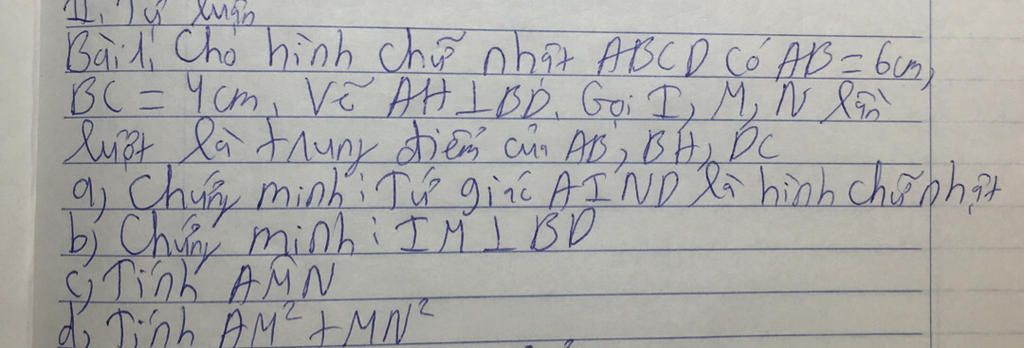 II. Tự luận
Bài 1: Cho hình chữ nhật ABCD có AB = 6cm,
BC = 4cm. Vẽ AH ⊥ BD. Gọi I, M, N lần
lượt là trung điểm của AB, BH, DC
a) Chứng minh: Tứ giác AIND là hình chữ nhật
b) Chứng minh: IM ⊥ BD
c) Tính AM̂N
d) Tính AM² + MN²